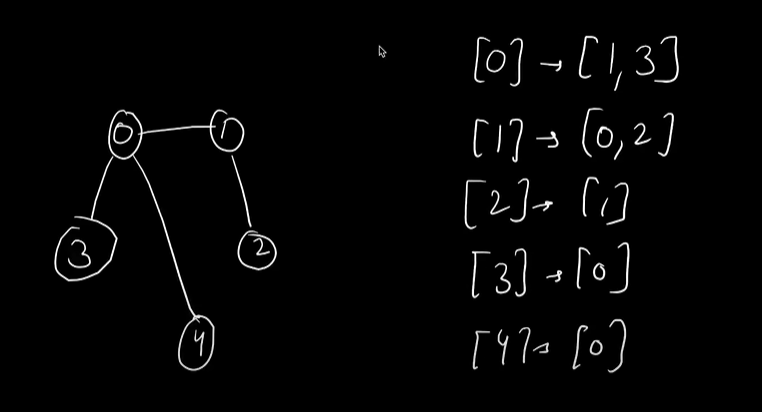 0
1
3
2
4
[0] → [1,3]
[1] → [0,2]
[2] → [1]
[3] → [0]
[4] → [0]